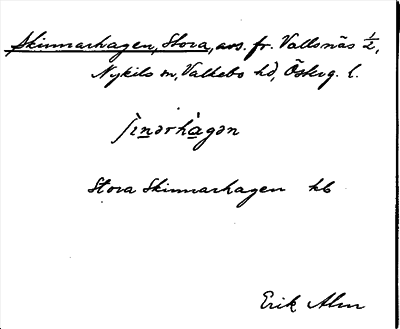 Skinnarhagen, Stora, avs. fr. Vallsnäs 1/2,
Nykils sn, Valkebo hd, Österg. l.
Stora Skinnarhagen hb
Erik Alm